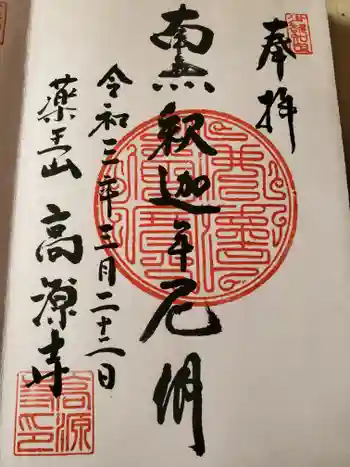 奉拝
南無釈迦牟尼佛
令和三年三月二十二日
薬王山
高源寺
高源寺印